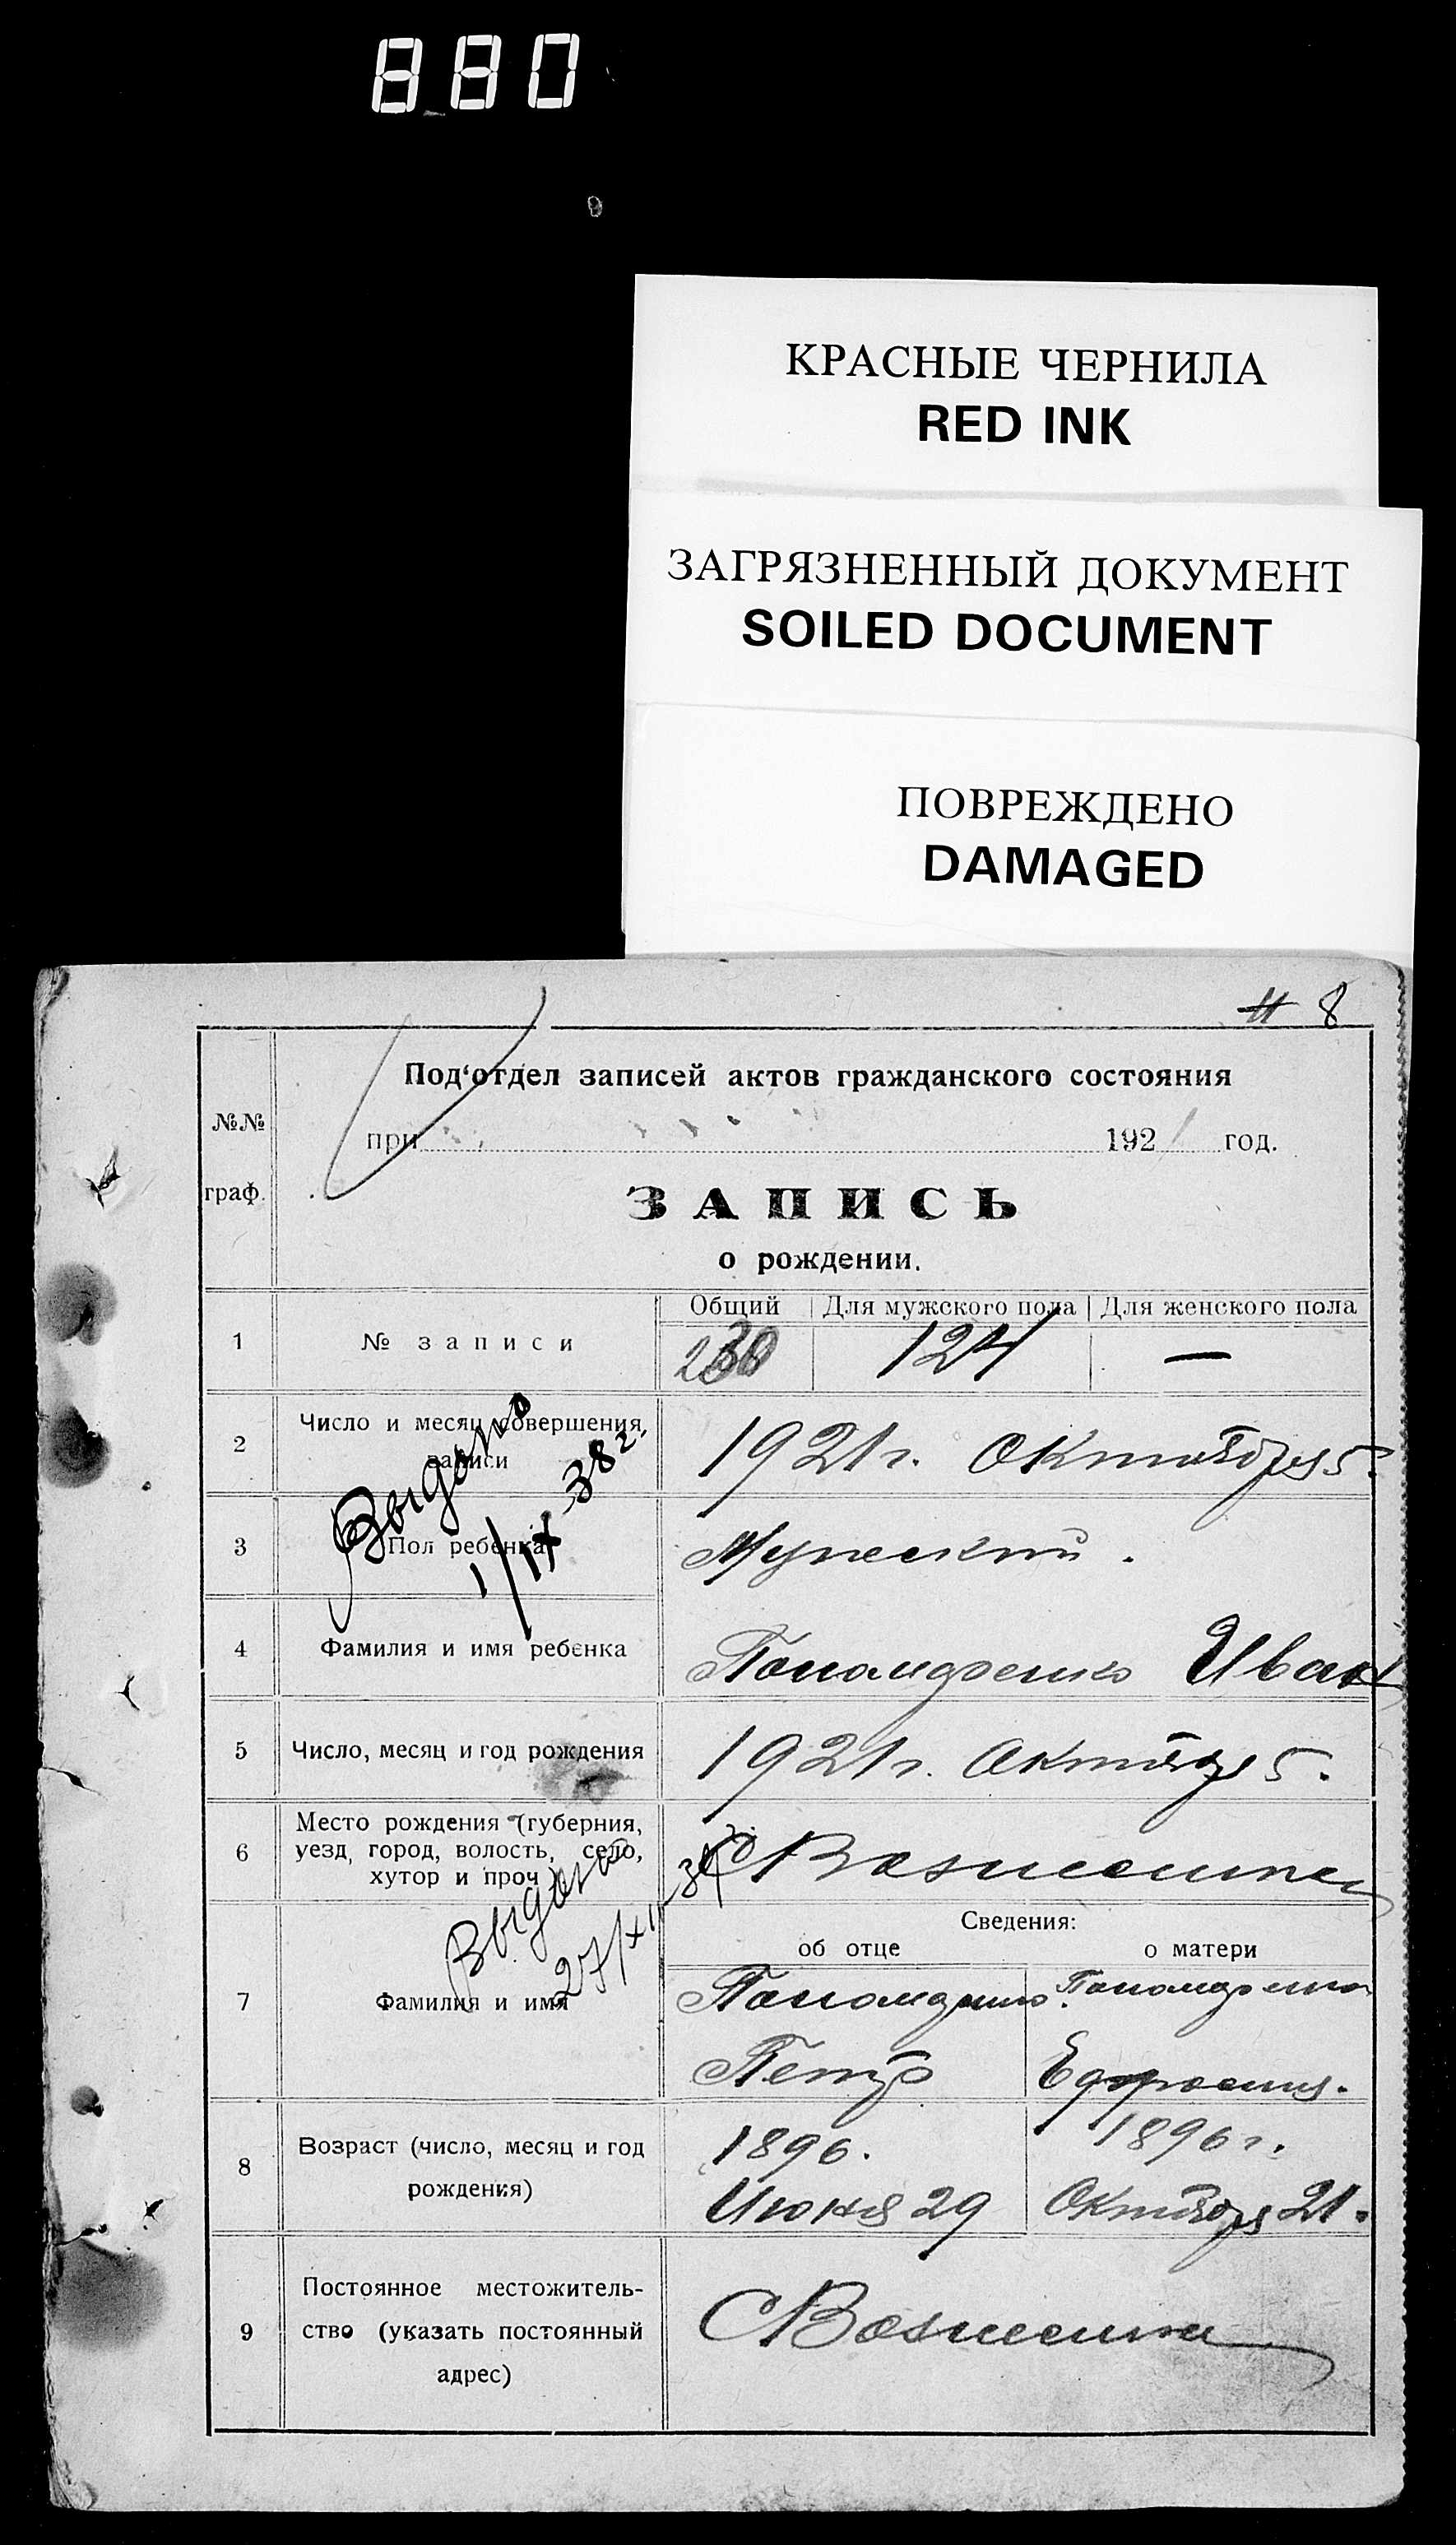 880
КРАСНЫЕ ЧЕРНИЛА
RED INK
ЗАГРЯЗНЕННЫЙ ДОКУМЕНТ
SOILED DOCUMENT
ПОВРЕЖДЕНО
DAMAGED
8
№№
граф.
Под‘отдел записей актов гражданского состояния
при 1921 год.
ЗАПИСЬ
о рождении.
Общий Для мужского пола Для женского пола
1 № записи 124 —
2 Число и месяц совершения записи
1921 г. Октября 5.
Выдано
1/IX-38 г.
3 Пол ребенка Мужеский.
4 Фамилия и имя ребенка Пономаренко Иван
5 Число, месяц и год рождения 1921 г. Октября 5.
6 Место рождения (губерния,
уезд, город, волость, село,
хутор и проч.)
С
Выдано
27/XII-37
Сведения:
об отце о матери
7 Фамилия и имя
Пономаренко Пономаренко
Петр Ефросиния.
8 Возраст (число, месяц и год
рождения)
1896. 1896 г.
Июня 29 Октября 21.
9 Постоянное местожитель-
ство (указать постоянный
адрес)
С